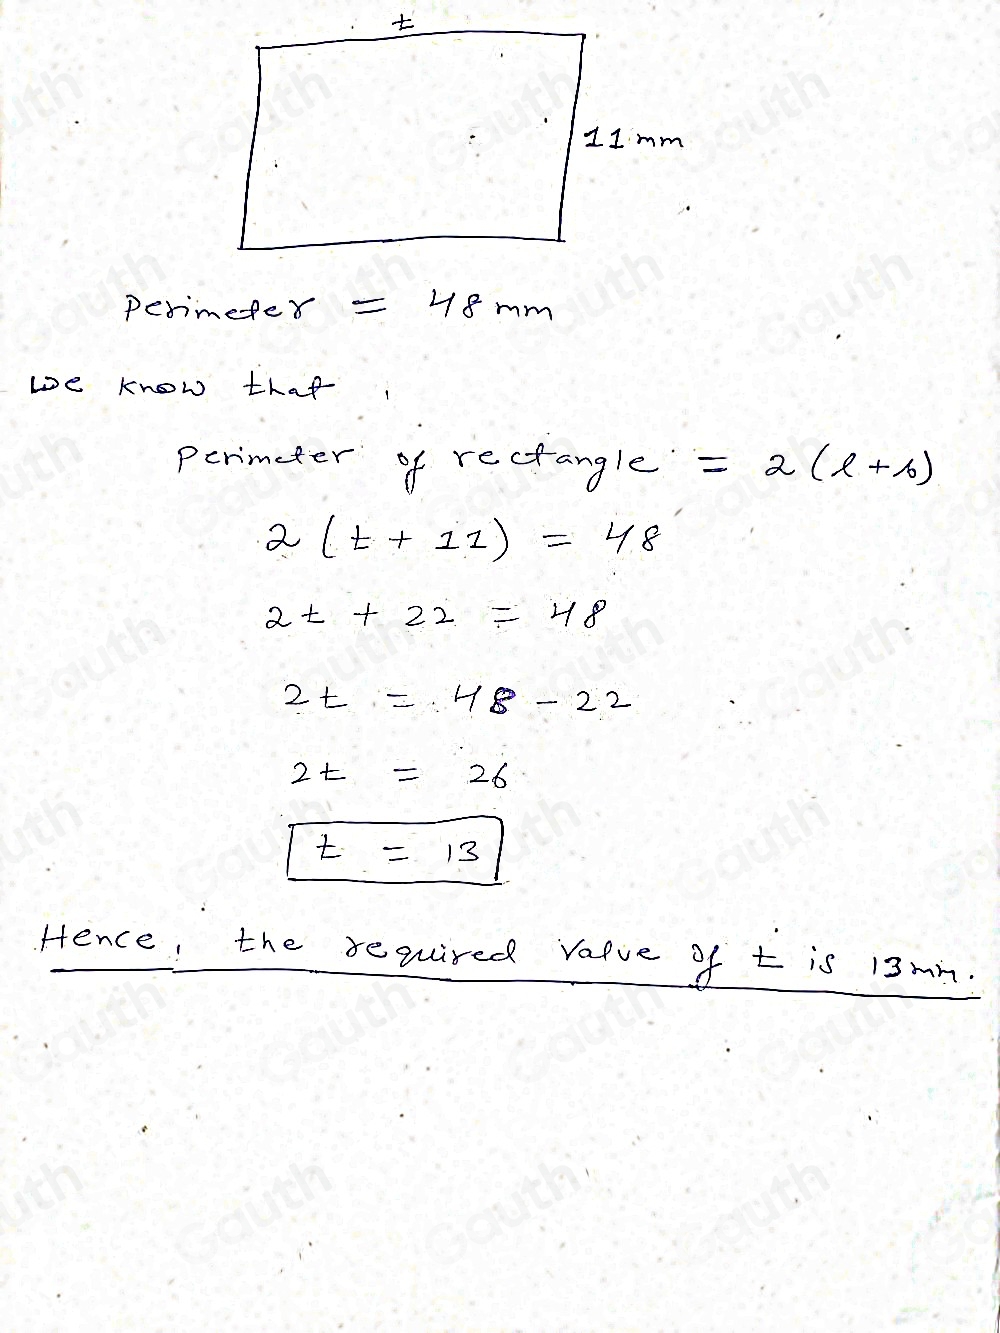 t
11 mm
Perimeter = 48 mm
we know that,
Perimeter of rectangle = 2(l+b)
2(t + 11) = 48
2t + 22 = 48
2t = 48 - 22
2t = 26
t = 13
Hence, the required value of t is 13mm.